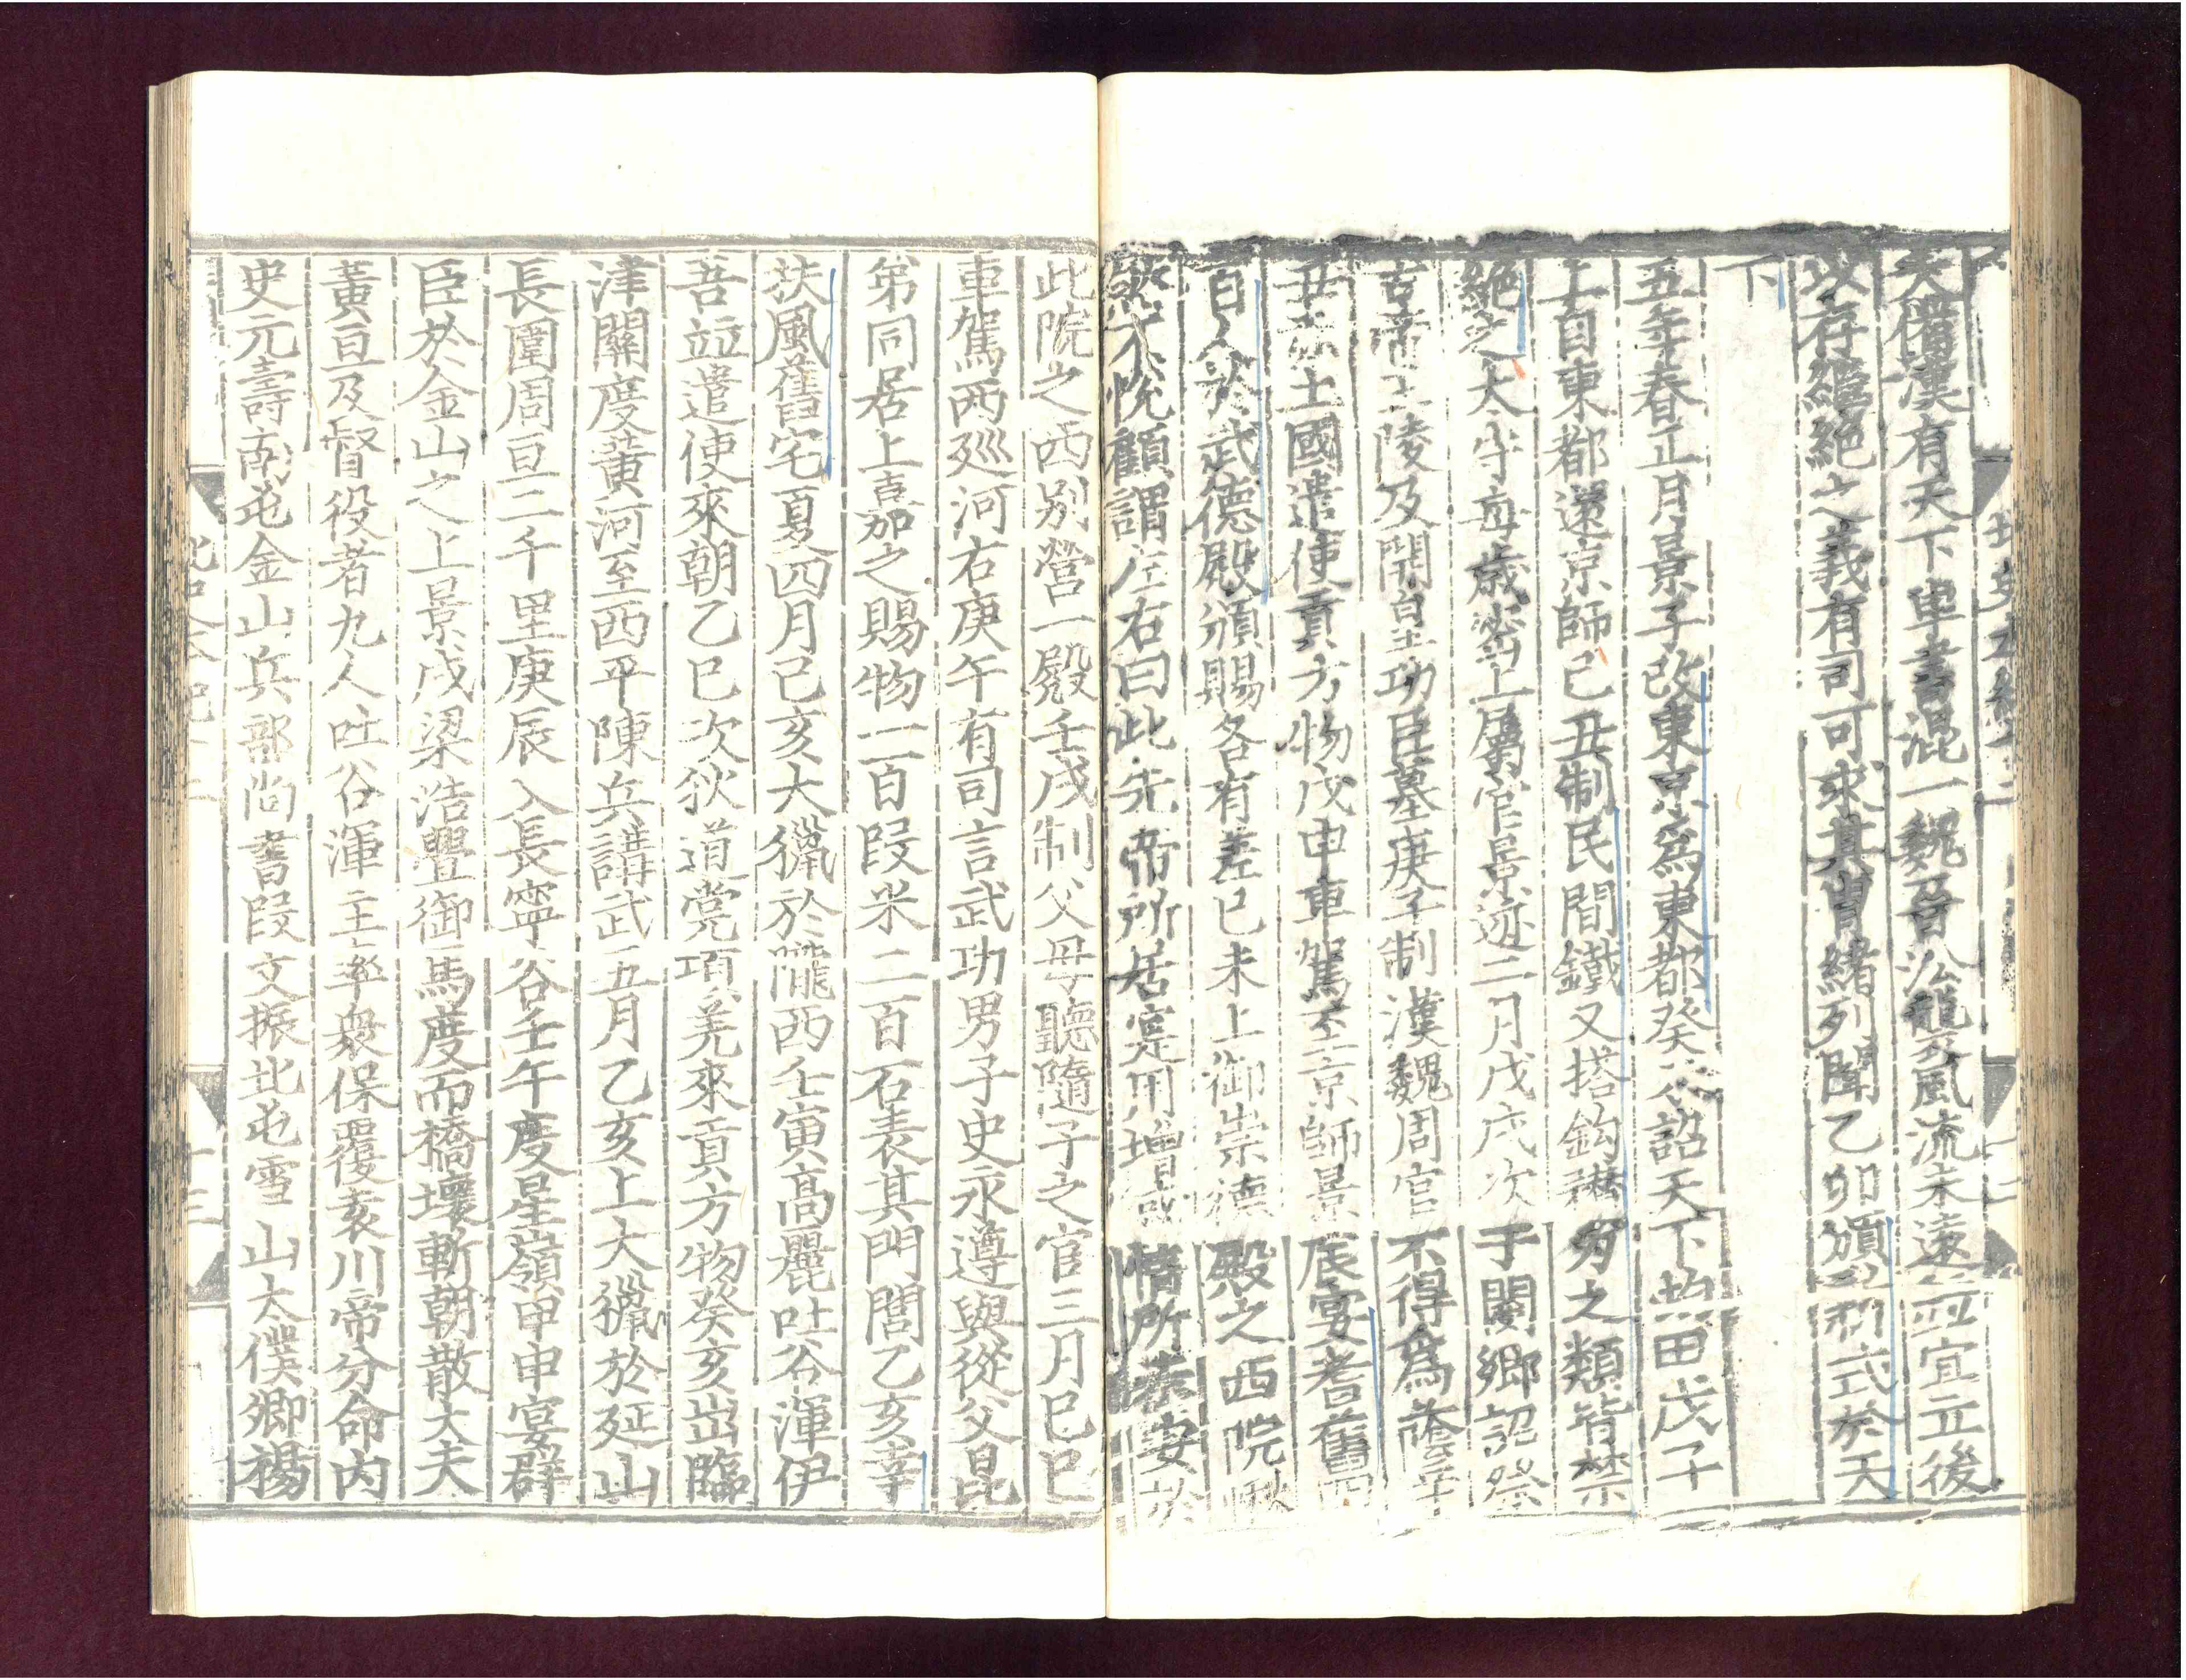 矣備漢有天下車書混一魏晉㳂襲風流未遠並宜立後
以存繼絕之義有司可求其冑緒列聞乙卯頒新式於天
下
五年春正月景子改東京爲東都癸未詔天下均田戊子
上自東都還京師己丑制民間鐵叉搭鈎䂎刃之類皆禁
絕之太守每歲密上屬官景迹二月戊戌次于閺鄉詔祭
古帝王陵及開皇功臣墓庚子制漢魏周官不得爲蔭辛
丑赤土國遣使貢方物戊申車駕至京師景辰宴耆舊四
百人於武德殿頒賜各有差己未上御崇德殿之西院愀
然不悅顧謂左右曰此先帝所居寔用增感情所未安於
此院之西別營一殿壬戌制父母聽隨子之官三月己巳
車駕西廵河右庚午有司言武功男子史永遵與從父昆
弟同居上嘉之賜物一百段米二百石表其門閭乙亥幸
扶風舊宅夏四月己亥大獵於隴西壬寅高麗吐谷渾伊
吾竝遣使來朝乙巳次狄道党項羌來貢方物癸亥出臨
津關度黃河至西平陳兵講武五月乙亥上大獵於延山
長圍周亘二千里庚辰入長寧谷壬午度星嶺甲申宴群
臣於金山之上景戌梁浩亹御馬度而橋壞斬朝散大夫
黃亘及督役者九人吐谷渾主率衆保覆袁川帝分命内
史元壽南屯金山兵部尚書段文振北屯雪山太僕卿楊
北史本紀十二
十三